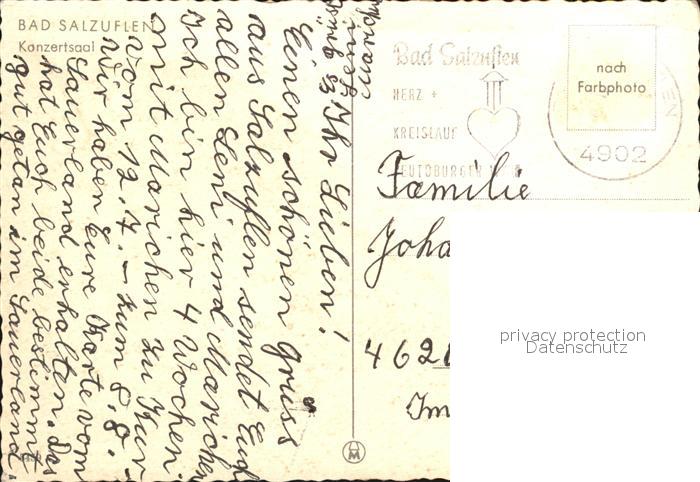 BAD SALZUFLEN
Konzertsaal
Ihr Lieben!
Einen schönen Gruss
aus Salzuflen sendet Euch
allen Leni und Marichen
Ich bin hier 4 Wochen.
mit Marichen zu Kur
vom 12.7. – zum 8.8.
Wir haben Eure Karte vom
Sauerland erhalten. Das
hat Euch beide bestimmt
gut getan im Sauerland
Bad Salzuflen
HERZ +
KREISLAUF
TEUTOBURGER
4902
nach
Farbphoto
Familie
Joha
462
Im
privacy protection
Datenschutz